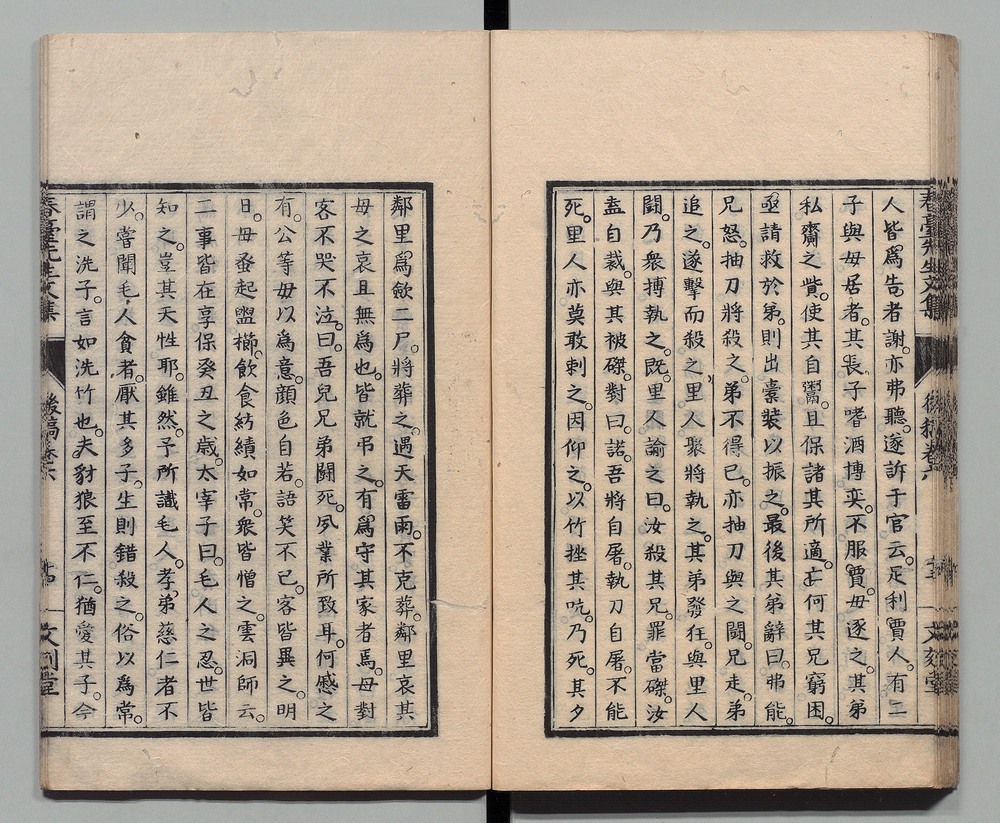 春臺先生文集
後稿卷六
十三
文刻堂
人皆爲告者謝亦弗聽。遂訴于官云。足利賈人。有二
子與母居者。其長子嗜酒博奕。不服賈。母逐之。其弟
私齎之貲。使其自鬻。且保諸其所適。亡何其兄窮困。
亟請救於弟。則出橐裝以振之。最後其弟辭曰。弗能。
兄怒。抽刀將殺之。弟不得已。亦抽刀與之鬪。兄走。弟
追之。遂擊而殺之。里人聚將執之。其弟發狂。與里人
鬪。乃衆搏執之。既里人諭之曰。汝殺其兄。罪當磔。汝
盍自裁。與其被磔。對曰。諾。吾將自屠。執刀自屠不能
死。里人亦莫敢刺之。因仰之。以竹挫其吭。乃死。其夕
鄰里爲斂二尸。將葬之。遇天雷雨。不克葬。鄰里哀其
母之哀且無爲也。皆就弔之。有爲守其家者焉。母對
客不哭不泣。曰。吾兒兄弟鬪死。夙業所致耳。何慼之
有。公等毋以爲意。顏色自若。語笑不已。客皆異之。明
日。母蚤起盥櫛。飲食紡績如常。衆皆憎之。雲洞師云。
二事皆在享保癸丑之歳。太宰子曰。毛人之忍。世皆
知之。豈其天性耶。雖然。予所識毛人。孝弟慈仁者不
少。嘗聞毛人貪者。厭其多子。生則錯殺之。俗以爲常。
謂之洗子。言如洗竹也。夫豺狼至不仁。猶愛其子。今
春臺先生文集
後稿卷六
十四
文刻堂